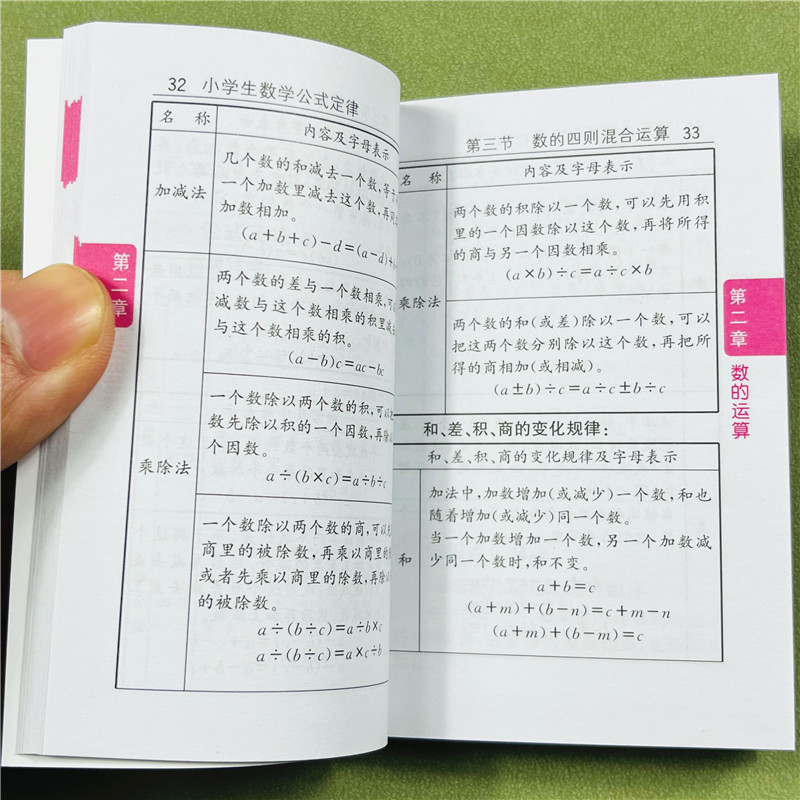 32 小学生数学公式定律
名 称
内容及字母表示
加减法
几个数的和减去一个数,等于
一个加数里减去这个数,再
加数相加。
(a+b+c)-d=(a-d)+
乘除法
两个数的差与一个数相乘,
减数与这个数相乘的积里减
与这个数相乘的积。
(a-b)c=ac-bc
一个数除以两个数的积,可以
数先除以积的一个因数,再除
个因数。
a÷(b×c)=a÷b÷c
一个数除以两个数的商,可以
商里的被除数,再乘以商里的
或者先乘以商里的除数,再除以
的被除数。
a÷(b÷c)=a÷b×c
a÷(b÷c)=a×c÷b
第二章
第三节 数的四则混合运算 33
名 称
内容及字母表示
乘除法
两个数的积除以一个数,可以先用积
里的一个因数除以这个数,再将所得
的商与另一个因数相乘。
(a×b)÷c=a÷c×b
两个数的和(或差)除以一个数,可以
把这两个数分别除以这个数,再把所
得的商相加(或相减)。
(a±b)÷c=a÷c±b÷c
和、差、积、商的变化规律:
和、差、积、商的变化规律及字母表示
和
加法中,加数增加(或减少)一个数,和也
随着增加(或减少)同一个数。
当一个加数增加一个数,另一个加数减
少同一个数时,和不变。
a+b=c
(a+m)+(b-n)=c+m-n
(a+m)+(b-m)=c
第二章
数的运算